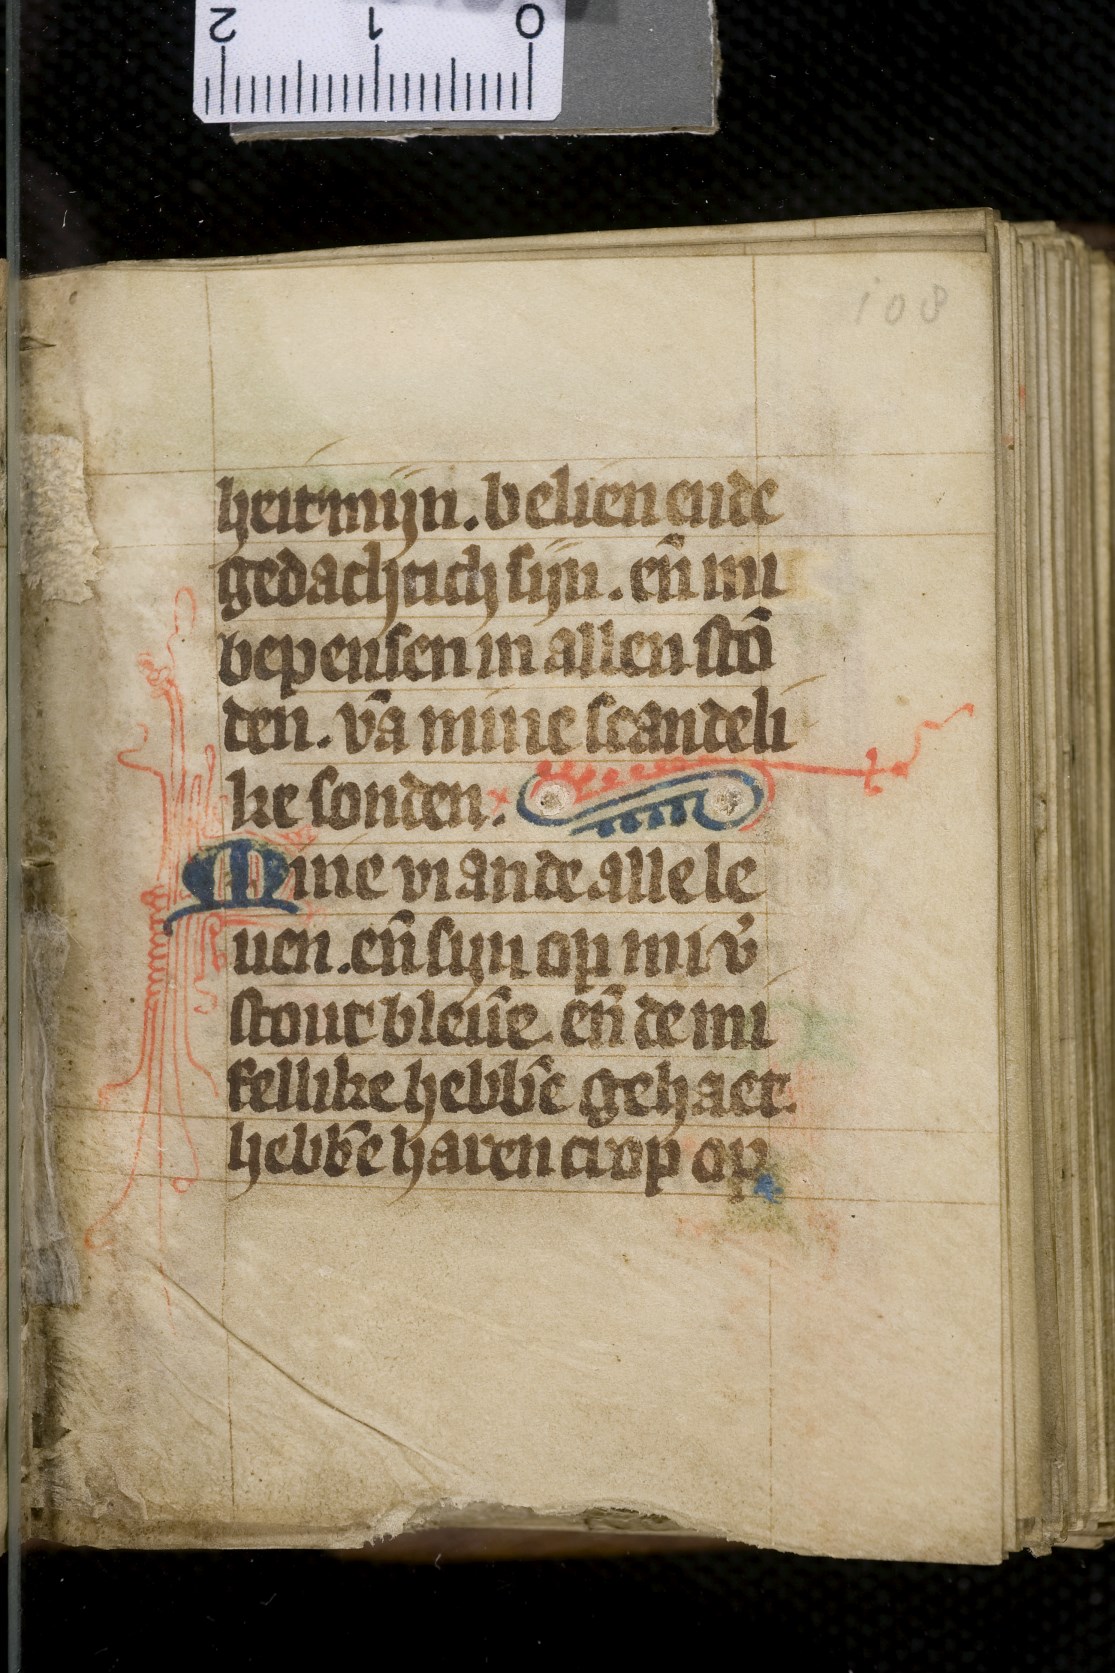 2 1 0
108
heit mijn. belien ende
gedachtich sijn. en̄ mi
bepensen in allen stō
den. vā mine scandeli
ke sonden.
Mine viande alle le
uen. en̄ sijn op mi v̄
stout bleuē. en̄ de mi
fellike hebbē gehaet.
hebbē haren crop op